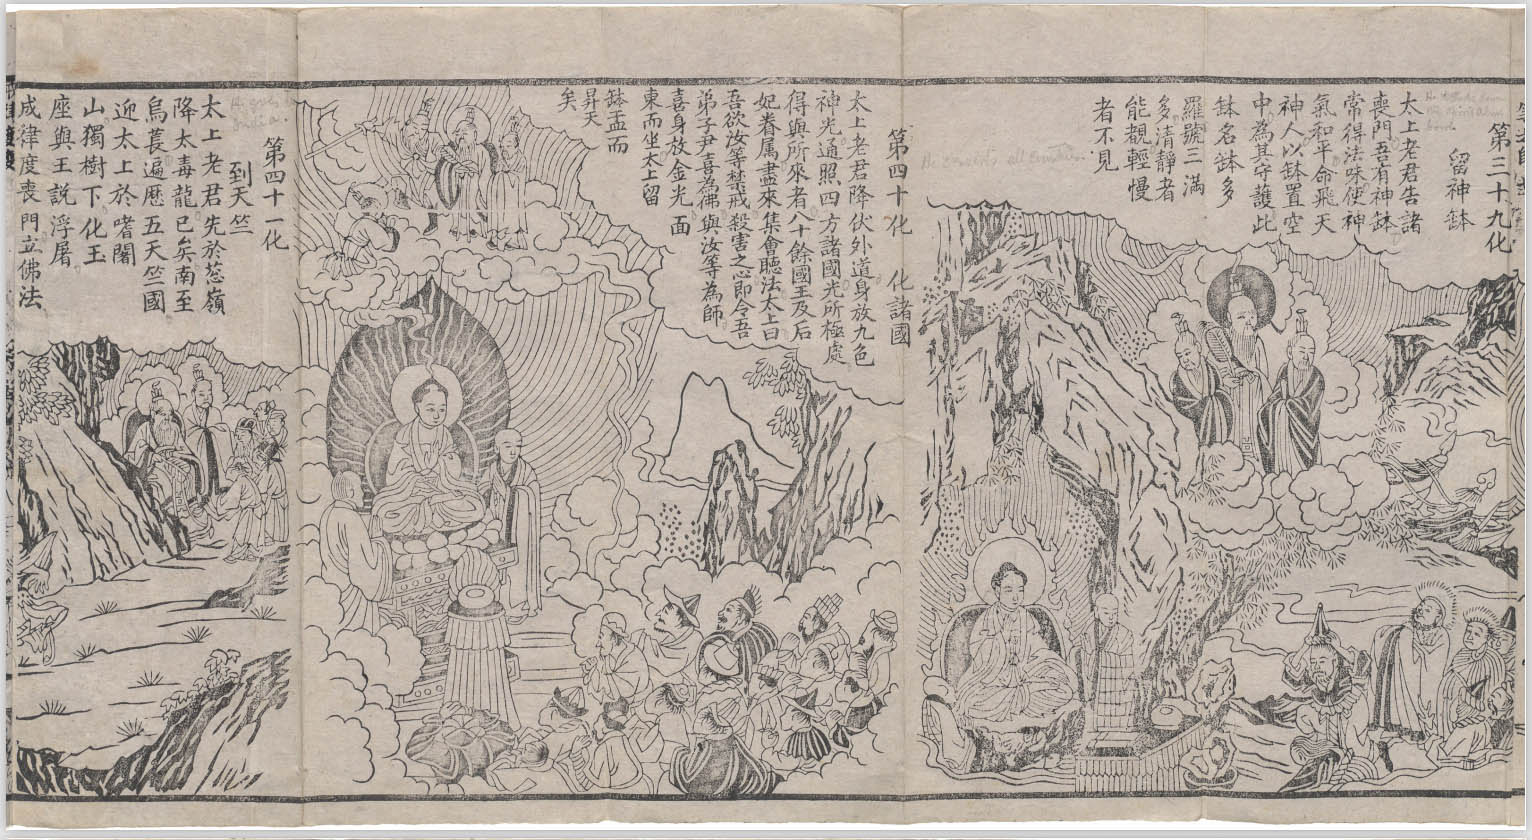 第三十九化
留神鉢
太上老君告諸
喪門吾有神鉢
常得法味使神
氣和平命飛天
神人以鉢置空
中為其守護此
鉢名鉢多
羅號三滿
多清靜者
能覩輕慢
者不見
第四十化 化諸國
太上老君降伏外道身放九色
神光通照四方諸國光所極處
得與所來者八十餘國王及后
妃眷属盡來集會聽法太上曰
吾欲汝等禁戒殺害之心即令吾
弟子尹喜為佛與汝等為師
喜身放金光面
東而坐太上留
鉢盂而
昇天
矣
第四十一化
到天竺
太上老君先於葱嶺
降太毒龍已矣南至
烏萇遍歷五天竺國
迎太上於嗜闍
山獨樹下化玉
座與王説浮屠
成律度喪門立佛法
He goes to India.